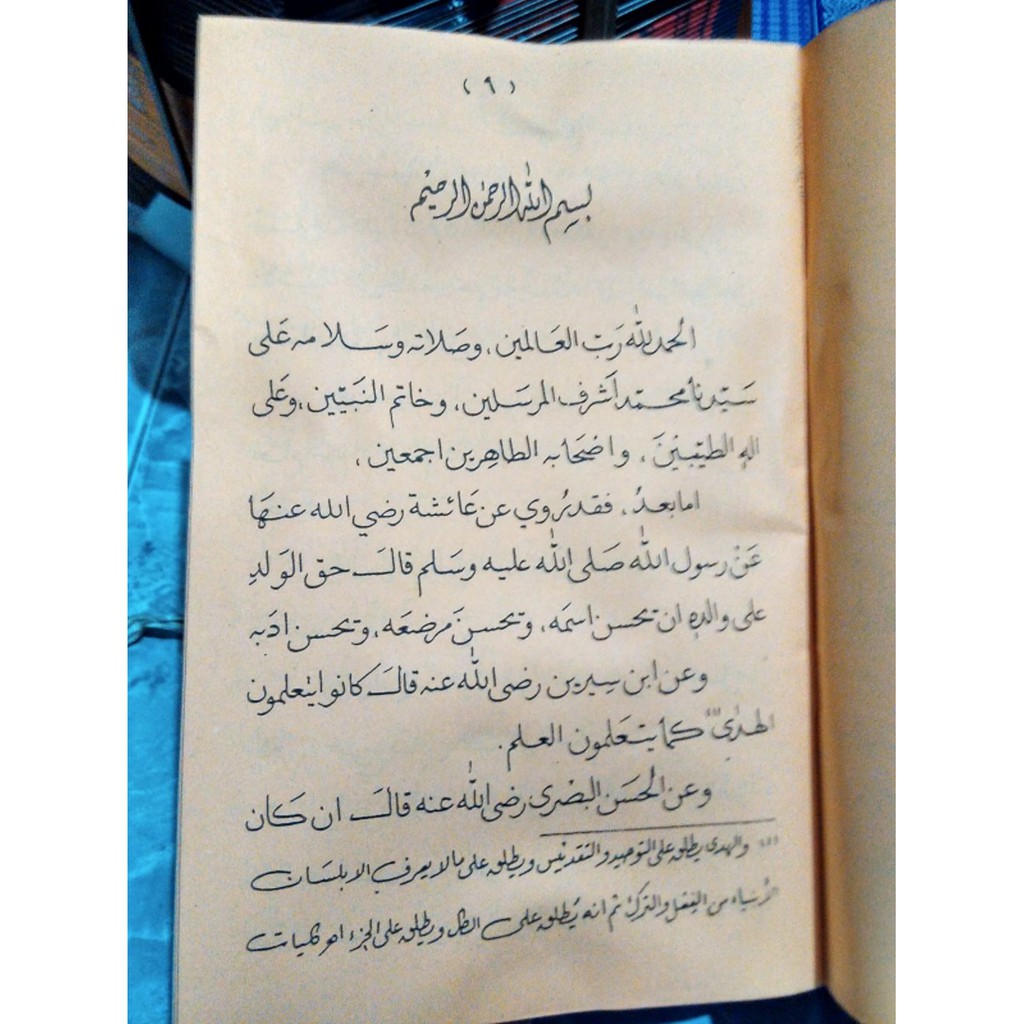 (٩)
بسم الله الرحمن الرحيم
الحمد لله رَبّ العَالمين، وصَلاته وسَلامه عَلى
سَيّدنا محمّد أشرف المرسَلين، وخاتم النبيّين، وعَلى
اله الطيّبينَ، واصْحَابه الطاهِرين اجمعين،
امابعدُ، فقدرُوي عن عَائشة رضي الله عنهَا
عَنْ رسول الله صَلى الله عليه وسَلم قالَ حق الوَلدِ
على والدهِ ان يحسن اسمَه، ويحسنَ مرضعَه، ويحسن ادَبه
وعن ابن سِيرين رضى الله عنه قالَ كانوايتعلمون
الهدٰيَ كمايتعَلمون العلم.
وعن الحَسَن البصْرى رضى الله عنه قالَ ان كَان
والهدى يطلق على التوحيد والتقديس ويطلق على مالايعرف الابلسَان
الأنبياء من الفعل والترك ثم انه يُطلق على الكل ويطلق على الجزء اهر كليات